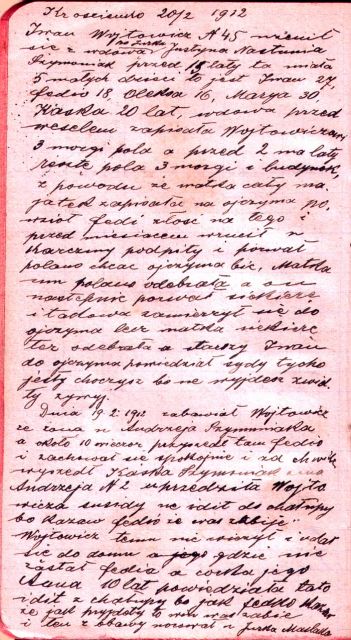 Krościenko 20/2 1912
Iwan Wojtowicz N 45 ożenił
się z wdową Justyna Nastunia
Szymoniak przed laty ta miała
5 małych dzieci to jest Iwan 27,
Fedio 18 Oleksa 16, Marya 30,
Kaśka 20 lat, wdowa przed
weselem zapisała Wojtowiczowi
3 morgi pola a przed 2 ma laty
resztę pola 3 morgi i budynek,
z powodu że matka cały ma
jątek zapisała na ojczyma po
wziął Fedi złość na tego i
przed miesiącem wrócił z
karczmy podpity i porwał
polano chcąc ojczyma bić, Matka
mu polano odebrała a on
następnie porwał siekierę
i tą zamierzył się do
ojczyma lecz matka siekierę
też odebrała a starszy Iwan
do ojczyma powiedział tycho
jesty choczysz bo ne wyjdesz
ty żywyj.
Dnia 19.2.1912 zabawiał Wojtowicz
ze żoną u Andrzeja Szymoniaka
a około 10 wieczór przyszedł tam Fedio
i zachował się spokojnie i za chwilę
wyszedł Kaśka Szymoniak
Andrzeja N 2 uprzedziła Wojto
wicza susidy ne idit do chałupy
bo kazaw Fedio że was zabije"
Wojtowicz temu nie wierzył i udał
się do domu a jego gdzie nie
zastał Fedia a córka jego
Anna 10 lat powiedziała tato
idit z chałupy bo jak Fedko
że jak pryjdoty to was zabie
i ten z obawy nocował u Jurka